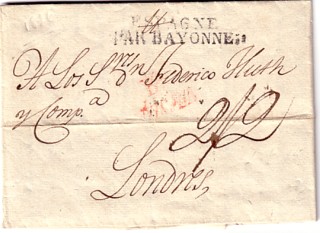 ESPAGNE
PAR BAYONNE.
A Los S.res Dn Federico Huth
y Comp.a
2/2
Londres,